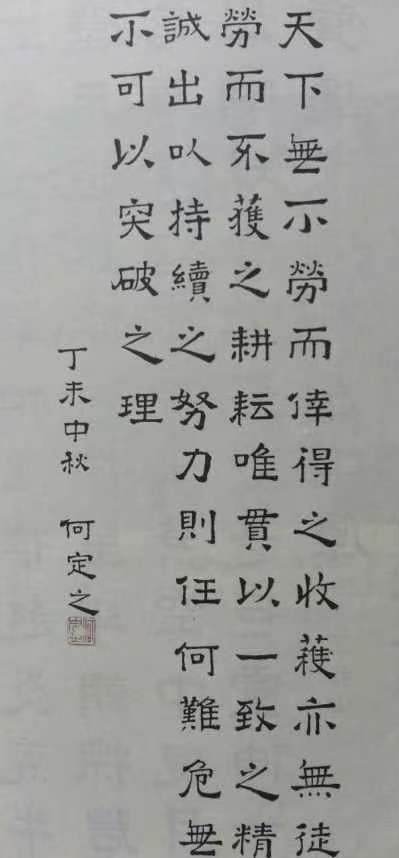 天下無不勞而倖得之收穫亦無徒
勞而不獲之耕耘唯貫以一致之精
誠出以持續之努力則任何難危無
不可以突破之理
丁未中秋 何定之